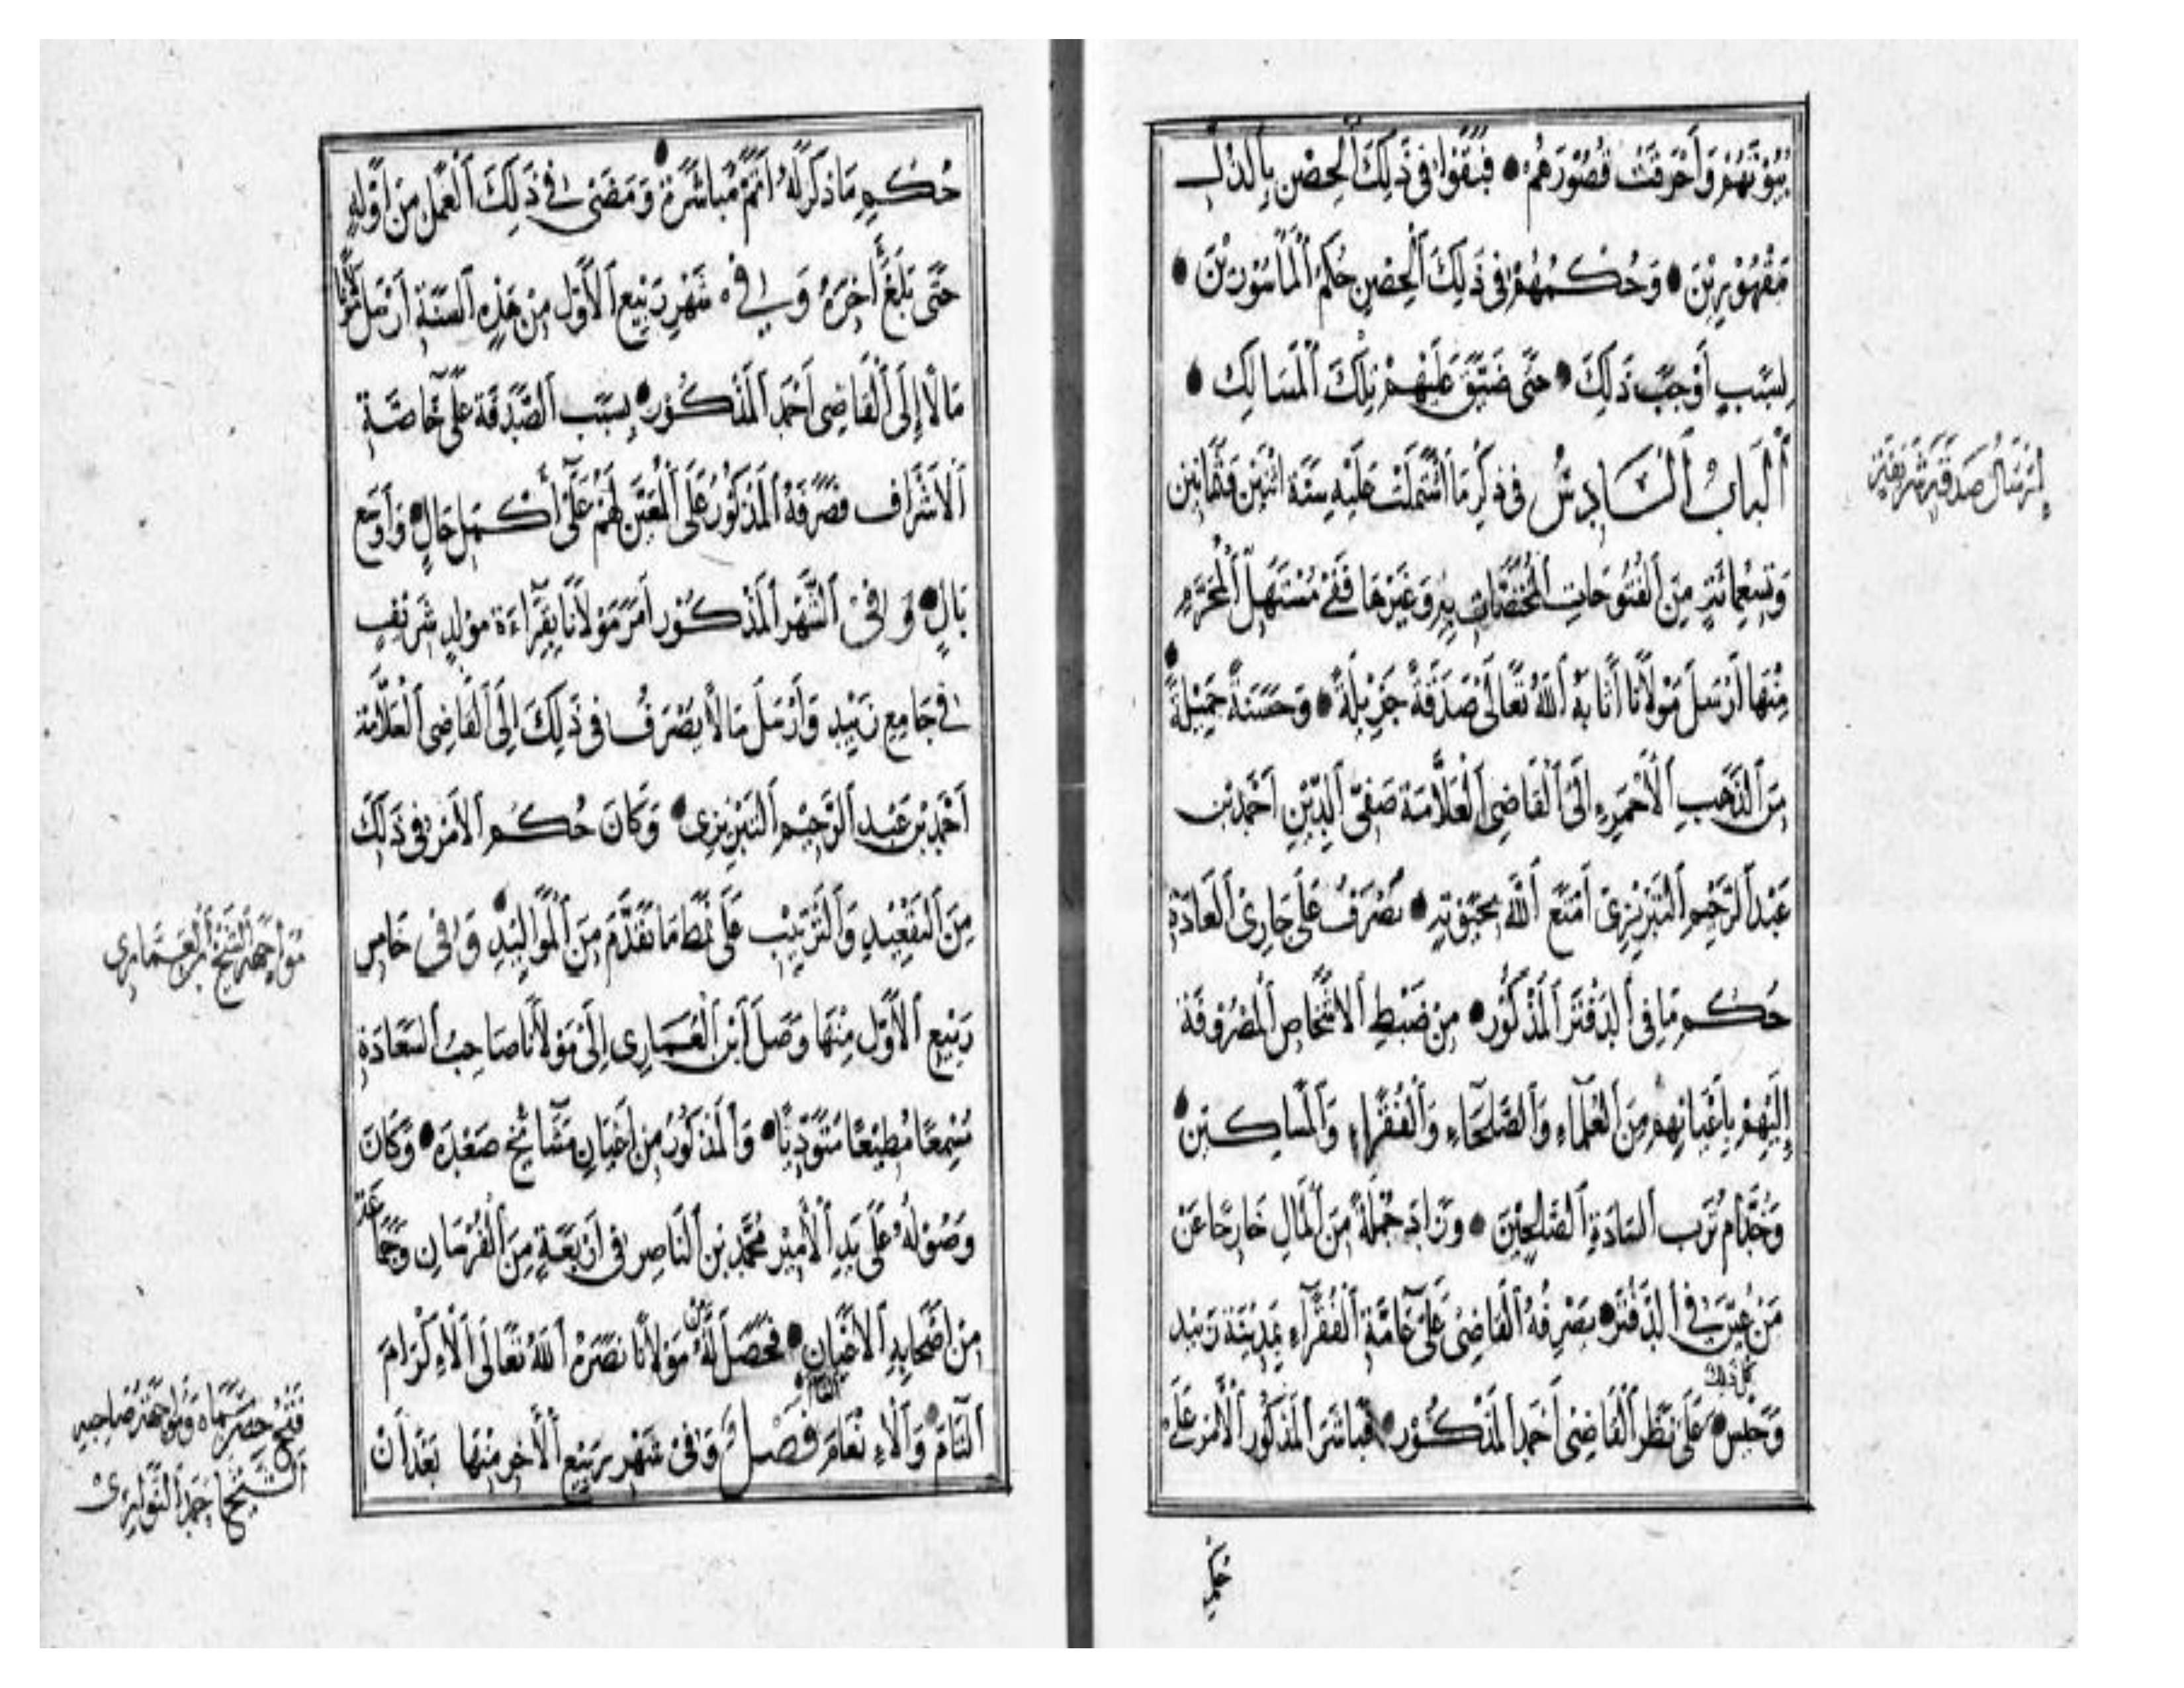 بُيُوْتُهُمْ وَاُحْرِقَتْ قُصُوْرُهُمْ • فَبَقَوْا فِى ذَلِكَ اَلْحِصْنِ بِالذُّلِّ
مَقْهُوْرِيْنَ • وَحُكْمُهُمْ فِى ذَلِكَ اَلْحِصْنِ حُكْمُ اَلْمَأْسُوْرِيْنَ •
لِسَبَبٍ اَوْجَبَ ذَلِكَ • حَتَّى ضَيَّقَ عَلَيْهِمْ تِلْكَ اَلْمَسَالِكْ •
اَلْبَابُ اَلسَّادِسُ فِى ذِكْرِ مَا اَشْتَمَلَتْ عَلَيْهِ سَنَة اثْنَيْن وَثَمَانِيْن
وَتِسْعِمِائَةٍ مِنَ اَلْفُتُوْحَاتِ وَغَيْرِهَا فَفِى مُسْتَهَلِّ اَلْمُحَرَّمِ
مِنْهَا اَرْسَلَ مَوْلَانَا اَثَابَهُ اَللهُ تَعَالَى صَدَقَةً جَزِيْلَةً • وَحَسَنَةً جَمِيْلَةً •
مِنَ اَلذَّهَبِ اَلْاَحْمَرِ اِلَى اَلْقَاضِى اَلْعَلَّامَة صَفِىّ اَلدِّيْنِ اَحْمَد بْن
عَبْد اَلرَّحِيْمِ اَلتَّبْرِيْزِىّ اَمْتَعَ اَللهُ بِحَيَوتِهِ • تُصْرَفُ عَلَى جَارِىْ اَلْعَادَةِ
حُكْمِ مَا فِى اَلدَّفْتَرِ اَلْمَذْكُوْرِ • مِنْ ضَبْطِ اَلْاَشْخَاصِ اَلْمَصْرُوْفَة
اِلَيْهِمْ بِاَعْيَانِهِمْ مِنَ اَلْعُلَمَآءِ وَاَلصُّلَحَاءِ وَاَلْفُقَرَاءِ وَاَلْمَسَاكِيْن •
وَخُدَّامِ تُرَبِ اَلسَّادَةِ اَلصَّالِحِيْنَ • وَزَادَ جُمْلَةً مِنَ اَلْمَالِ خَارِجًا عَنْ
مَنْ عُيِّنَ فِى اَلدَّفْتَرِ • يَصْرِفُهُ اَلْقَاضِى عَلَى عَامَّةِ اَلْفُقَرَآءِ بِمَدِيْنَة زَبِيْد
كل ذلك
وَحَيْس • عَلَى نَظَرِ اَلْقَاضِى اَحْمَد اَلْمَذْكُوْر • فَبَاشَرَ اَلْمَذْكُوْرُ اَلْاَمْرَ عَلَى
حُكْمِ
اِرْسَالُ صَدَقَةٍ شَرِيْفَةٍ
حُكْمِ مَا ذَكَرَ لَهُ اَتَمَّ مُبَاشَرَةٍ • وَمَضَى فِى ذَلِكَ اَلْعَمَلِ مِنْ اَوَّلِهِ
حَتَّى بَلَغَ اَخِرَهُ وَفِى شَهْرِ رَبِيْعِ اَلْاَوَّلِ مِنْ هَذِهِ اَلسَّنَةِ اَرْسَلَ مَوْلَانَا
مَالًا اِلَى اَلْقَاضِى اَحْمَدَ اَلْمَذْكُوْرِ • بِسَبَبِ اَلصَّدَقَة عَلَى خَاصَّةِ
اَلْاَشْرَافِ فَصَرَفَهُ اَلْمَذْكُوْرُ عَلَى اَلْمُعَيَّنِ لَهُمْ عَلَى اَكْمَلِ حَالٍ • وَاَوْسَعِ
بَالٍ • وَفِى اَلشَّهْرِ اَلْمَذْكُوْرِ اَمَرَ مَوْلَانَا بِقِرَآءَة مَوْلِدٍ شَرِيْفٍ
فِى جَامِعِ زَبِيْد وَاَرْسَلَ مَالًا يُصْرَفُ فِى ذَلِكَ اِلَى اَلْقَاضِى اَلْعَلَّامَة
اَحْمَد بْن عَبْدِ اَلرَّحِيْمِ اَلتَّبْرِيْزِى • وَكَانَ حُكْمُ اَلْاَمْرِ فِى ذَلِكَ
مِنَ اَلتَّقْعِيْدِ وَاَلتَّرْتِيْبِ عَلَى نَمَطِ مَا تَقَدَّمَ مِنَ اَلْمَوَالِيْدِ • وَفِى خَامِسِ
رَبِيْعِ اَلْاَوَّلِ مِنْهَا وَصَلَ اَبْن اَلْعَمَارِى اِلَى مَوْلَانَا صَاحِبُ اَلسَّعَادَةِ
سَمِيْعًا مُطِيْعًا • وَاَلْمَذْكُوْرُ مِنْ اَعْيَانِ مَشَآئِخِ صَعْدَة • وَكَانَ
وُصُوْلُهُ عَلَى يَدِ اَلْاَمِيْرِ مُحَمَّد بْنِ اَلنَّاصِر فِى اَرْبَعَةٍ مِنَ اَلْفُرْسَانِ وَجَمَاعَةٍ
مِنْ اَصْحَابِهِ اَلْاَعْيَانِ • فَحَصَلَ لَهُ مِنْ مَوْلَانَا نَصَرَهُ اَللهُ تَعَالَى اَلْاِكْرَامُ
اَلتَّامّ • وَاَلْاِنْعَام اَلْعَام فَصْلٌ وَفِى شَهْرِ رَبِيْعِ اَلْاَخِر مِنْهَا بَعْدَ اَنْ
مُوَاجَهَة اَلشَّيْخ اَبْن اَلْعَمَارِى
فَتْحُ حِصْن وَمُوَاجَهَة صَاحِبِهِ
اَلشَّيْخ اَحْمَد